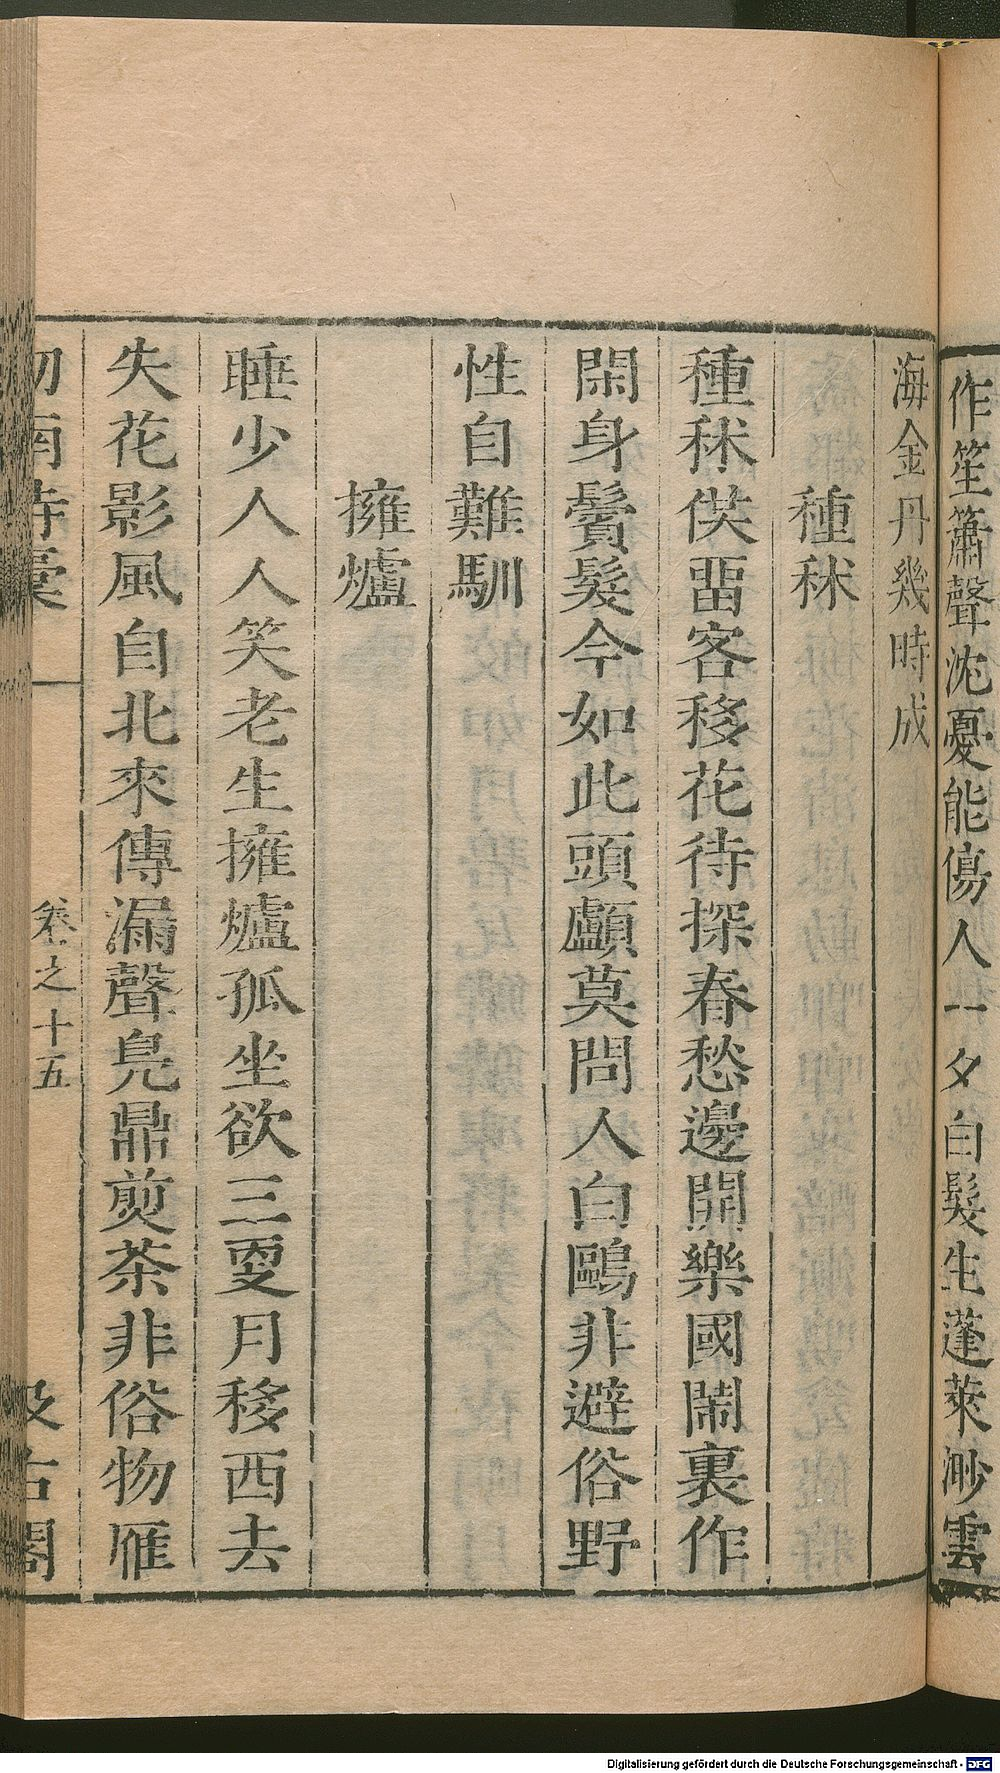 作笙簫聲沈憂能傷人一夕白髮生蓬萊渺雲
海金丹幾時成
種秫
種秫供畱客移花待探春愁邊開樂國鬧裏作
閑身鬢髮今如此頭顱莫問人白鷗非避俗野
性自難馴
擁爐
睡少人人笑老生擁爐孤坐欲三更月移西去
失花影風自北來傳漏聲鳧鼎煎茶非俗物雁
劒南詩稾 卷之十五 汲古閣
Digitalisierung gefördert durch die Deutsche Forschungsgemeinschaft - DFG